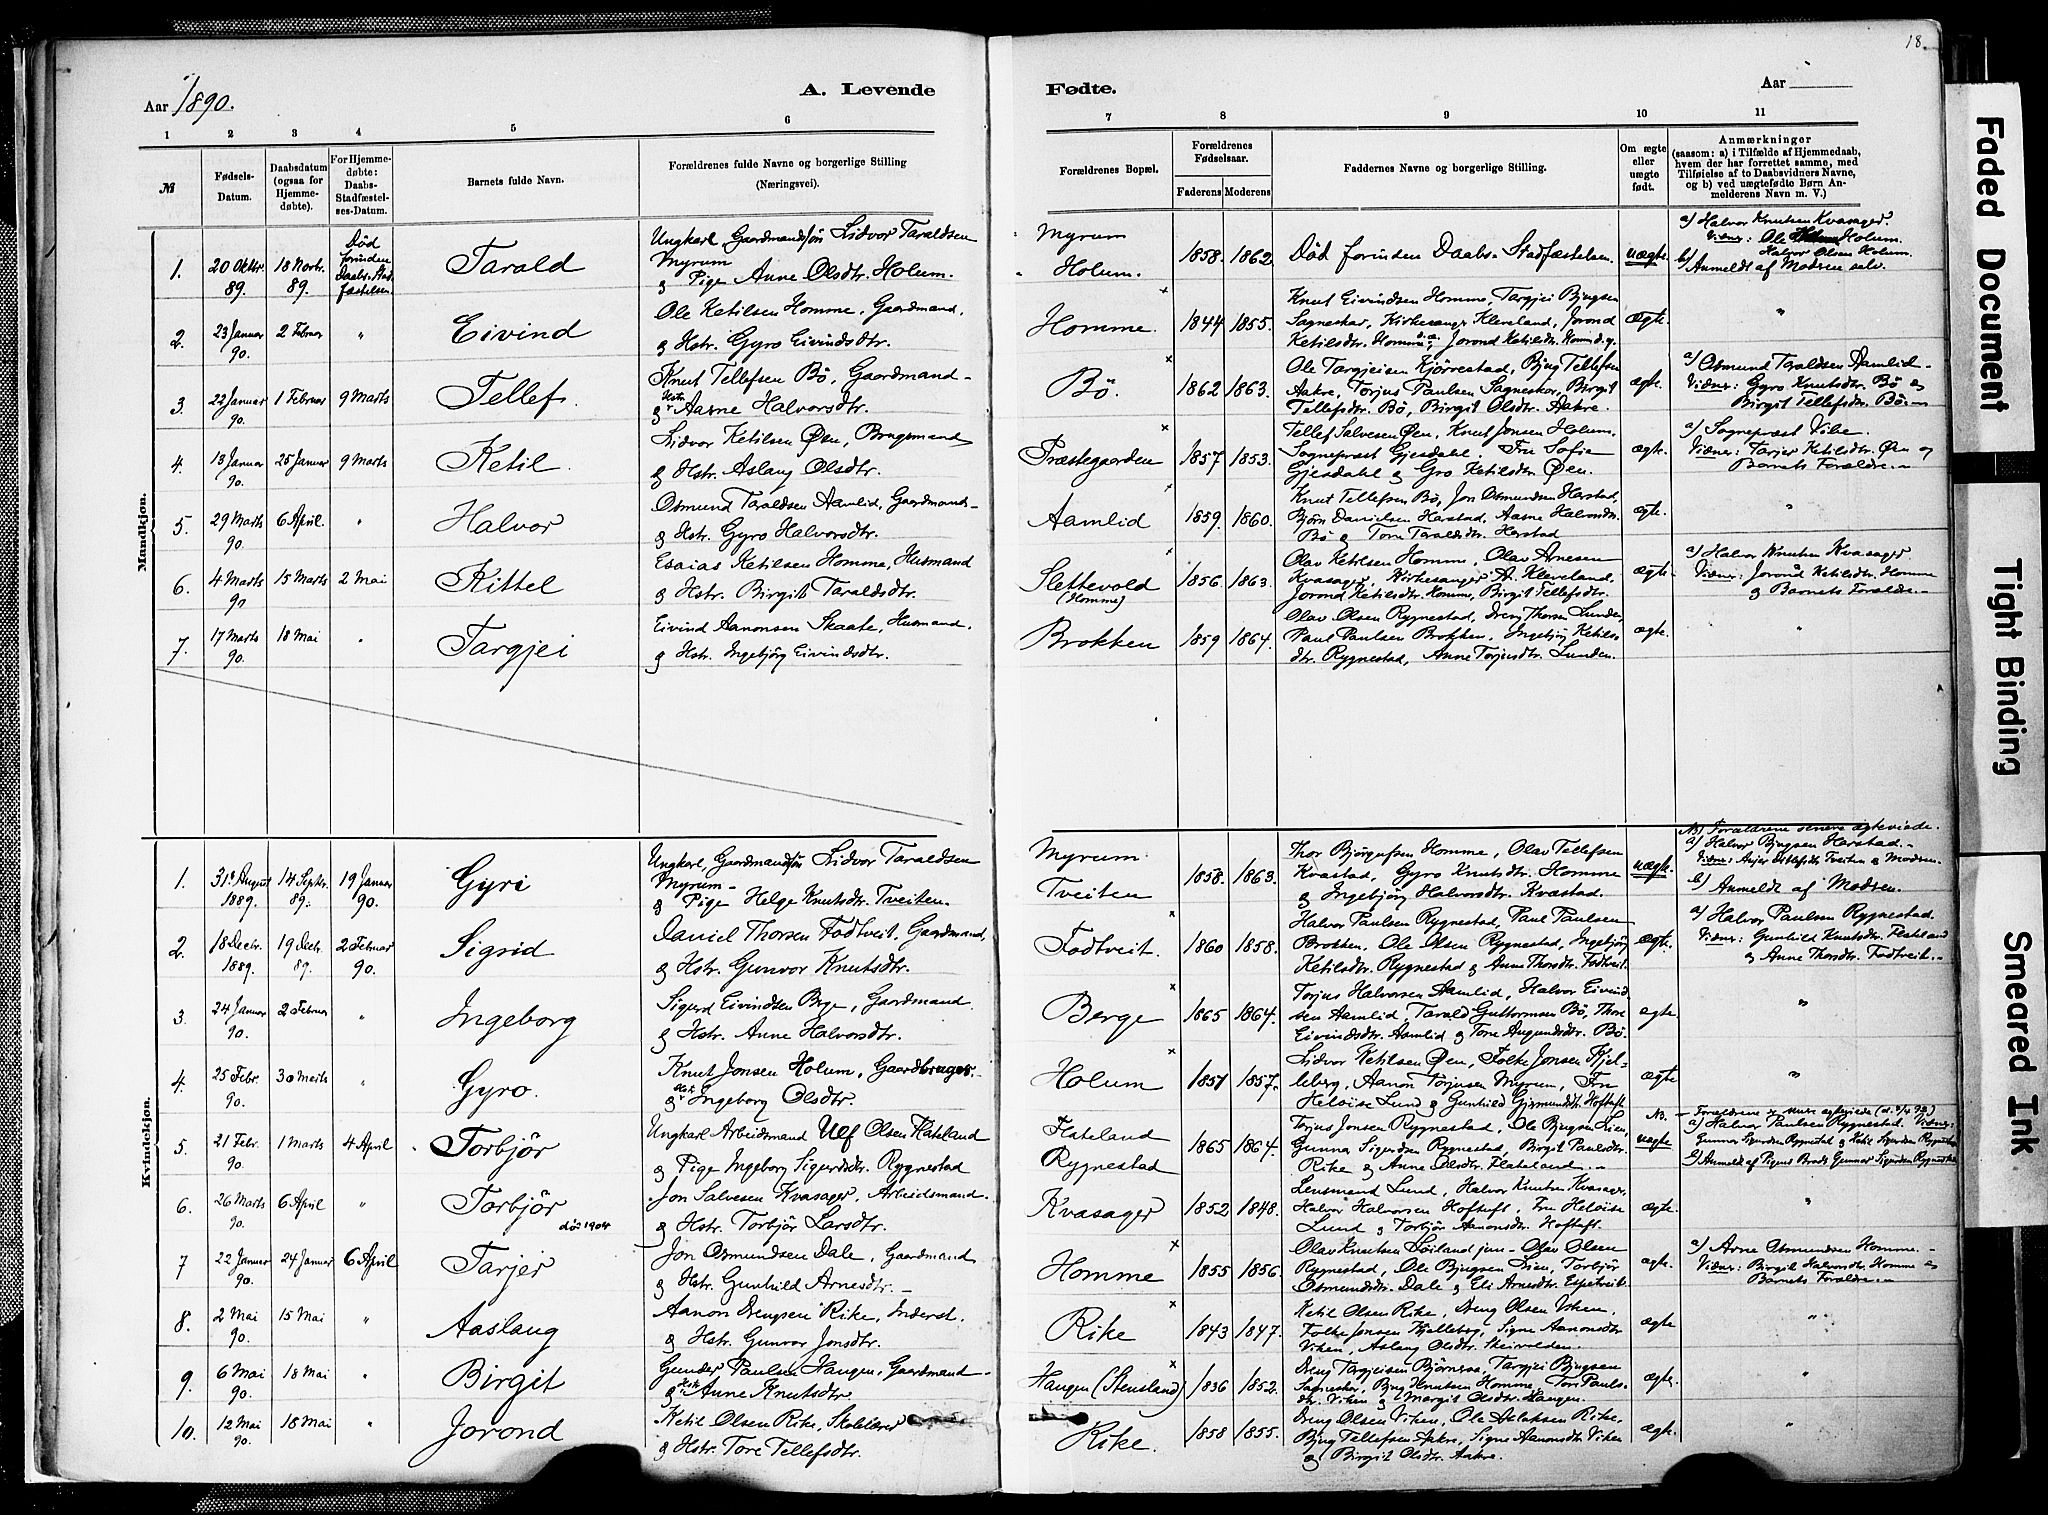 18.
Aar 1890.
A. Levende
Fødte.
Aar
1 2 3 4 5 6 7 8 9 10 11
№
Fødsels-
Datum.
Daabsdatum
(ogsaa for
Hjemme-
døbte).
For Hjemme-
døbte:
Daabs-
Stadfæstel-
ses-Datum.
Barnets fulde Navn.
Forældrenes fulde Navne og borgerlige Stilling
(Næringsvei).
Forældrenes Bopæl.
Forældrenes
Fødselsaar.
Faderens Moderens
Faddernes Navne og borgerlige Stilling.
Om ægte
eller
uægte
født.
Anmærkninger
(saasom: a) i Tilfælde af Hjemmedaab,
hvem der har forrettet samme, med
Tilføielse af to Daabsvidners Navne,
og b) ved uægtefødte Børn An-
melderens Navn m. V.)
Mandkjøn.
1.
20 Oktbr.
89.
18 Novbr.
89.
Død
forinden
Daabs-Stad
fæstelsen.
Tarald
Ungkarl Gaardmandssøn Lidvor Taraldsen
Myrum
& Pige Anne Olsdtr. Holum.
Myrum
Holum.
1858. 1862
Død forinden Daabs-Stadfæstelsen.
uægte.
a) Halvor Knutsen Kvasager.
Vidner: Ole Holum.
Halvor Olsen Holum.
b) Anmeldt af Modsen selv.
2.
23 Januar
90.
2 Februar
"
Eivind
Ole Ketilsen Homme, Gaardmand,
& Hstr. Gyro Eivindsdtr.
Homme.
1844 1855.
Knut Eivindsen Homme, Targjei Bjugsen
Sagneskar, Kirkesanger Kleveland, Jorond
Ketilsdtr. Homme d. æ., Jorond Ketilsdtr. Homme d. y.
Ægte.
"
3.
22 Januar
90.
1 Februar
9 Marts
Tellef.
Knut Tellefsen Bø, Gaardmand-
& Hstr. Aasne Halvorsdtr.
Bø.
1862 1863.
Ole Targjeisen Kjørrestad, Bjug Tellefsen
Aakre, Torjus Paulsen Sagneskar, Birgit
Tellefsdtr. Bø, Birgit Olsdtr. Aakre.
ægte.
a) Osmund Taraldsen Aamlid-
Vidner: Gyro Knutsdtr. Bø &
Birgit Tellefsdtr. Bø.-
4.
13 Januar
90.
25 Januar
9 Marts
Ketil.
Lidvor Ketilsen Øen, Brugsmand
& Hstr. Aslaug Olsdtr.
Præstegaarden
1857 1853.
Tellef Salvesen Øen, Knut Jonsen Holum.
Sogneprest Gjesdahl. Fru Sofie
Gjesdahl & Gro Ketilsdtr. Øen.
ægte.
a) Sogneprest Vibe.
Vidner: Tarjer Ketilsdtr. Øen &
Barnets Forældre.-
5.
29 Marts
90.
6 April.
"
Halvor
Osmund Taraldsen Aamlid, Gaardmand-
& Hstr. Gyro Halvorsdtr.
Aamlid
1859. 1860.
Knut Tellefsen Bø, Jon Osmundsen Harstad,
Bjørn Danielsen Harstad, Aasne Halvorsdtr.
Bø & Tore Taraldsdtr. Harstad
ægte.
"
6.
4 Marts
90
15 Marts
2 Mai
Kittel
Esaias Ketilsen Homme, Husmand
& Hstr. Birgit Taraldsdtr.
Slettevold
(Homme)
1856. 1863.
Olav Ketilsen Homme, Olav Arnesen
Kvasager, Kirkesanger A. Kleveland,
Jorond Ketilsdtr. Homme, Birgit Tellefsdtr.
ægte-
a) Halvor Knutsen Kvasager
Vidner: Jorond Ketilsdtr. Homme
& Barnets Forældre.-
7.
17 Marts
90.
18 Mai
"
Targjei
Eivind Aanonsen Skaate, Husmand.
& Hstr. Ingebjørg Eivindsdtr.
Brokken
1859 1864.
Olav Olsen Rygnestad, Dreng Thorsen Lunden
Paul Paulsen Brokken, Ingebjørg Ketils-
dtr. Rygnestad, Anne Torjusdtr. Lunden.
ægte.
"
Kvindekjøn.
1.
31te August
1889.
14 Septbr.
89.
19 Januar
90.
Gyri
Ungkarl, Gaardmandssøn Lidvor Taraldsen
Myrum-
& Pige Helge Knutsdtr. Tveiten.
Myrum
Tveiten
1858. 1863.
Thor Bjørgufsen Homme, Olav Tellefsen
Kvastad, Gyro Knutsdtr. Homme
& Ingebjørg Halvorsdtr. Kvæstad.
uægte.
NB. Forældrene senere ægteviede.
a) Halvor Bjugsen Harstad.-
b) Anmeldt af Modsen.
2.
18 Decbr.
1889.
19 Decbr.
89.
2 Februar
90.
Sigrid
Daniel Thorsen Fodtveit, Gaardmand,
& Hstr. Gunvor Knutsdtr.
Fodtveit.
1860 1858.
Halvor Paulsen Rygnestad, Paul Paulsen
Brokken, Ole Olsen Rygnestad, Ingebjørg
Ketilsdtr. Rygnestad & Anne Thorsdtr. Fodtveit.
ægte.
a) Halvor Paulsen Rygnestad.
Vidner: Gunhild Knutsdtr. Flateland
& Anne Thorsdtr. Fodtveit.-
3.
24 Januar
90.
2 Februar
"
Ingeborg
Sigurd Eivindsen Berge, Gaardmand
& Hstr. Anne Halvorsdtr.
Berge
1865 1864.
Torjus Halvorsen Aamlid, Halvor Eivind-
sen Aamlid, Tarald Guttormsen Bø, Thore
Eivindsdtr. Aamlid & Tone Augundsdtr. Bø.
ægte
"
4.
25 Febr.
90.
30 Marts
"
Gyro.
Knut Jonsen Holum, Gaardbruger.-
& Hstr. Ingeborg Olsdtr.
Holum
1857 1857.
Lidvor Ketilsen Øen, Folke Jonsen Kjel-
leberg, Aanon Torjusen Myrum, Fru
Heloise Lund & Gunhild Gjermundsdtr. Hoftuft
ægte
"
5
21 Febr.
90.
1 Marts
4 April
Torbjør
Ungkarl Arbeidsmand Ulf Olsen Flateland
& Pige Ingeborg Sigurdsdtr. Rygnestad
Flateland
Rygnestad
1865 1864.
Torjus Jonsen Rygnestad, Ole Bjugsen Lien,
Gunnar Sigurdsen Rygnestad, Birgit Paulsdtr.
Rike & Anne Olsdtr. Flateland.-
NB.
uægte
a) Halvor Paulsen Rygnestad. Vidner:
Gunnar Sigurdsen Rygnestad & Ketil Sigurdsen Rygnestad
b) Anmeldt af Pigens Broder Gunnar Sigurdsen Rygnestad
6.
26 Marts
90.
6 April
"
Torbjør
død 1904
Jon Salvesen Kvasager, Arbeidsmand.
& Hstr. Torbjør Larsdtr.
Kvasager
1852 1848.
Lensmand Lund, Halvor Knutsen Kvasager,
Halvor Halvorsen Hoftuft, Fru Heloise
Lund & Torbjør Aanonsdtr. Hoftuft.
ægte.
"
7
22 Januar
90.
24 Januar
6 April
Tarjer
Jon Osmundsen Dale, Gaardmand
& Hstr. Gunhild Arnesdtr.-
Homme
1855 1856.
Olav Knutsen Løiland jun- Olav Olsen
Rygnestad, Ole Bjugsen Lien, Torbjør
Osmundsdtr. Dale & Eli Arnesdtr. Espetveit.
ægte.
a) Arne Osmundsen Homme.-
Vidner: Birgit Halvorsdtr. Homme &
Barnets Forældre.-
8.
2 Mai
90.
15 Mai
"
Aaslaug
Aanon Drengsen Rike, Inderst.
& Hstr. Gunvor Jonsdtr.
Rike
1843 1847.
Ketil Olsen Rike, Dreng Olsen Viken,
Folke Jonsen Kjelleberg, Signe Aanonsdtr
Viken, Aslaug Olsdtr.
ægte
"
9.
6 Mai
90.
18 Mai
"
Birgit
Gunder Paulsen Haugen, Gaardmand-
& Hstr. Anne Knutsdtr.
Haugen (Stensland)
1836 1852.
Dreng Targjeisen Bjørnaraa, Targjei Bjugsen
Sagneskar, Bjug Knutsen Homme, Tore Pauls-
dtr. Viken & Margit Olsdtr. Haugen.
ægte.
"
10.
12 Mai
90.
18 Mai
"
Jorond
Ketil Olsen Rike, Skolelærer
& Hstr. Tore Tellefsdtr.
Rike.
1858 1855.
Dreng Olsen Viken, Ole Aslaksen Rike,
Bjug Tellefsen Aakre, Signe Aanonsdtr. Viken
& Birgit Olsdtr. Aakre.
ægte.
"
Faded Document
Tight Binding
Smeared Ink